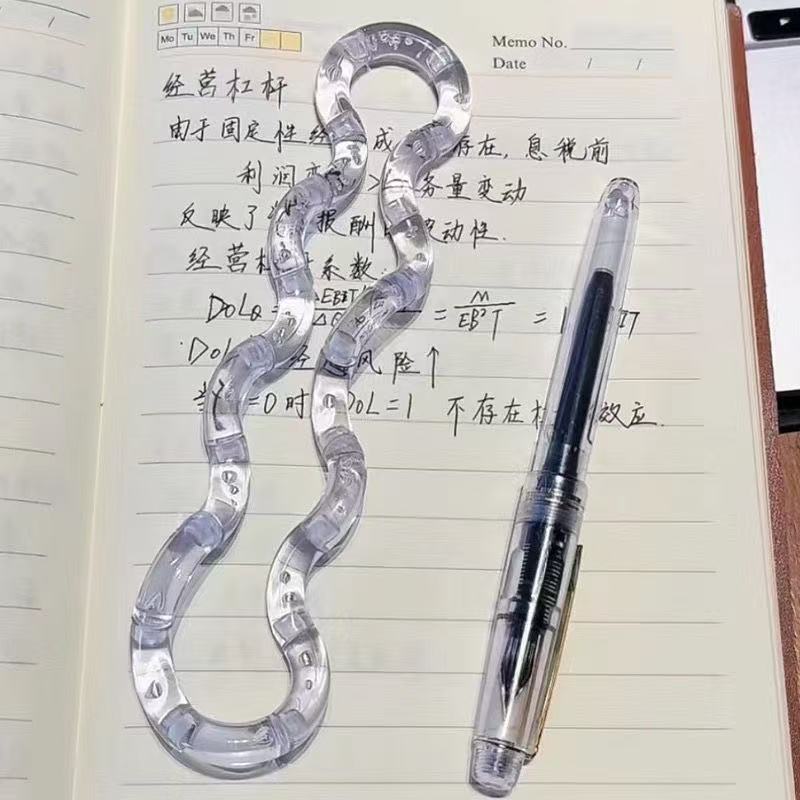 Mo Tu We Th Fr
Memo No.
Date / /
经营杠杆
由于固定性经 成 存在, 息税前
利润变 > 务量变动
反映了 报酬 波动性.
经营杠 系数:
DOL = = M / EBIT = 1
DOL 经 风险↑
当 =0时 DOL=1 不存在杠 效应.